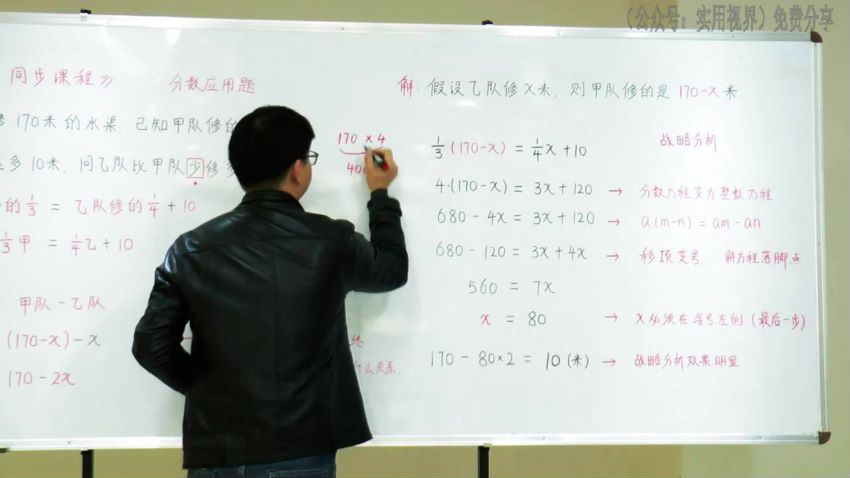 (公众号：实用视界) 免费分享
同步课程》 分数应用题
修170米的水渠，已知甲队修的
多10米，问乙队比甲队少修多
的1/3 = 乙队修的1/4 + 10
1/3甲 = 1/4乙 + 10
甲队 - 乙队
(170-x) - x
170 - 2x
170 × 4
40
什么关系.
解：假设乙队修x米，则甲队修的是 170-x 米
1/3(170-x) = 1/4x + 10 战略分析
4·(170-x) = 3x + 120 → 分数方程变为整数方程
680 - 4x = 3x + 120 → a(m-n) = am - an
680 - 120 = 3x + 4x → 移项变号，解方程落脚点
560 = 7x
x = 80 → x必须在等号左侧 (最后一步)
170 - 80×2 = 10 (米) → 战略分析效果明显